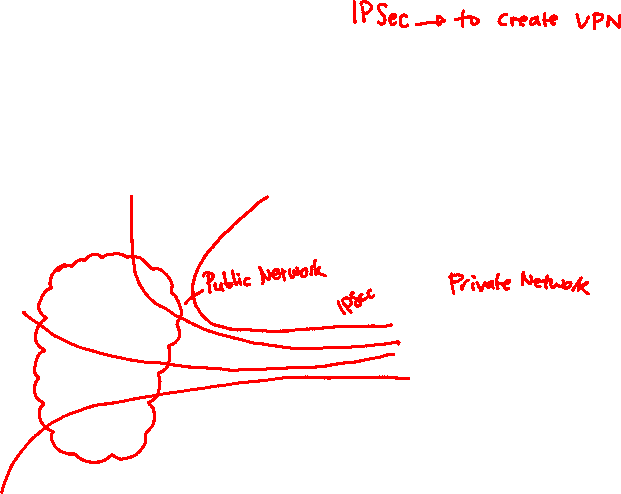 IPSec → to create VPN
Public Network
IPSec
Private Network